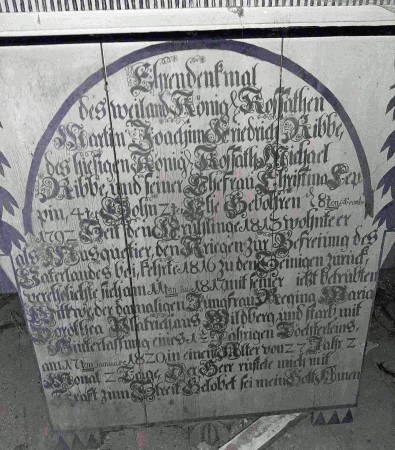 Ehrendenkmal
des weiland König Kossäthen
Martin Joachim Friedrich Ribbe,
des hiesigen König Kossäth Michael
Ribbe, und seiner Ehefrau Christina
ppin, Sohn Geboh­ren, d 8
1792 Seit den Frühlinge 1813 wohnte er
als Musquetier, den Kriegen zur Befreiung des
Vaterlandes bei, kehrte 1816 zu den Seinigen zurück
verehelichte sich am 1817 mit seiner jetzt betrübten
Wittwe, der damaligen Jungfrau Regina Maria
Dorothea aus Wildberg und starb mit
Hinterlassung eines 1½ Jährigen Töchterleins
am 11 Januar 1820, in einem Alter von 27 Jahr 2
Monat 2 Tage, Der Herr rüstete mich mit
Kraft zum Streit Gelobet sei mein Gott Amen